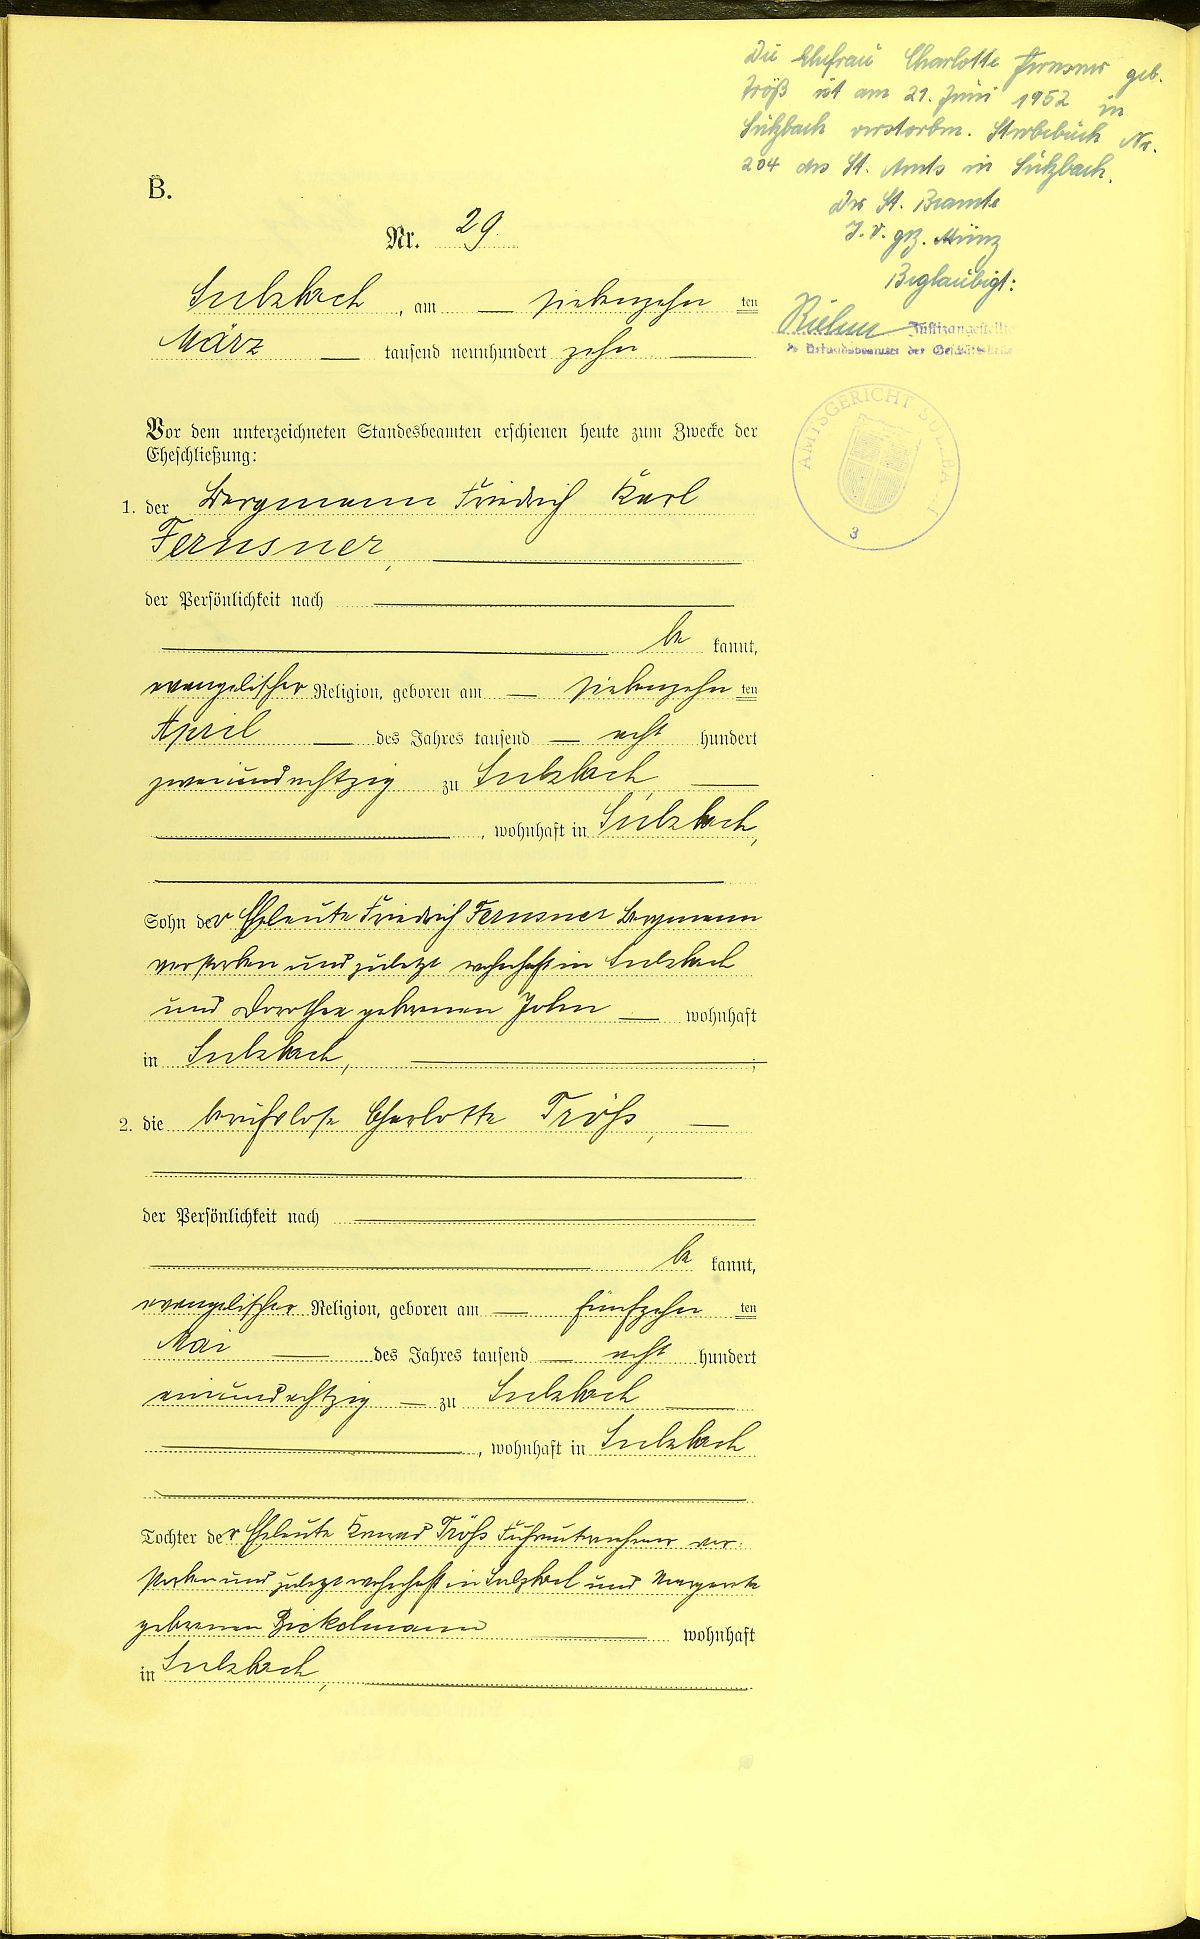 Die Ehefrau Charlotte Fernsner geb.
Tröß ist am 21. Juni 1952 in
Sulzbach verstorben. Sterbebuch Nr.
204 des St. Amts in Sulzbach.
Der St. Beamte
I. V. gez. Münz
Beglaubigt:
Justizangestellte
als Urkundsbeamter der Geschäftsstelle
AMTSGERICHT SULZBACH
3
B.
Nr. 29
Sulzbach, am — siebenzehn ten
März — tausend neunhundert zehn —
Vor dem unterzeichneten Standesbeamten erschienen heute zum Zwecke der
Eheschließung:
1. der Bergmann Friedrich Karl
Fernsner,
der Persönlichkeit nach
be kannt,
evangelischer Religion, geboren am — siebenzehn ten
April — des Jahres tausend — acht hundert
zweiundachtzig zu Sulzbach,
, wohnhaft in Sulzbach,
Sohn der Eheleute Friedrich Fernsner Bergmann
verstorben und zuletzt wohnhaft in Sulzbach
und Dorothea geborenen John — wohnhaft
in Sulzbach, ;
2. die berufslose Charlotte Tröhs, —
der Persönlichkeit nach
be kannt,
evangelischer Religion, geboren am — fünfzehn ten
Mai — des Jahres tausend — acht hundert
einundachtzig — zu Sulzbach
, wohnhaft in Sulzbach
Tochter der Eheleute Konrad Tröhs Fuhrunternehmer ver-
storben und zuletzt wohnhaft in Sulzbach und Margareta
geborenen Bickelmann — wohnhaft
in Sulzbach,